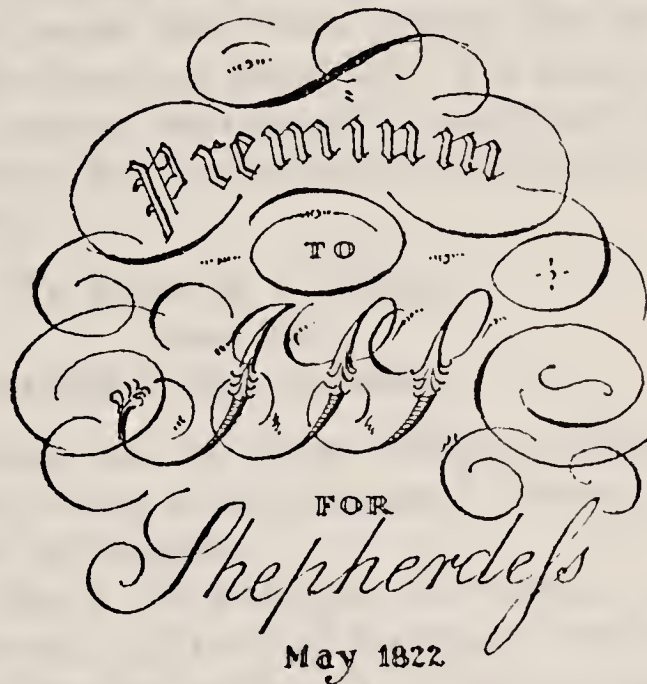 Premium
TO
FOR
Shepherdeſs
May 1822